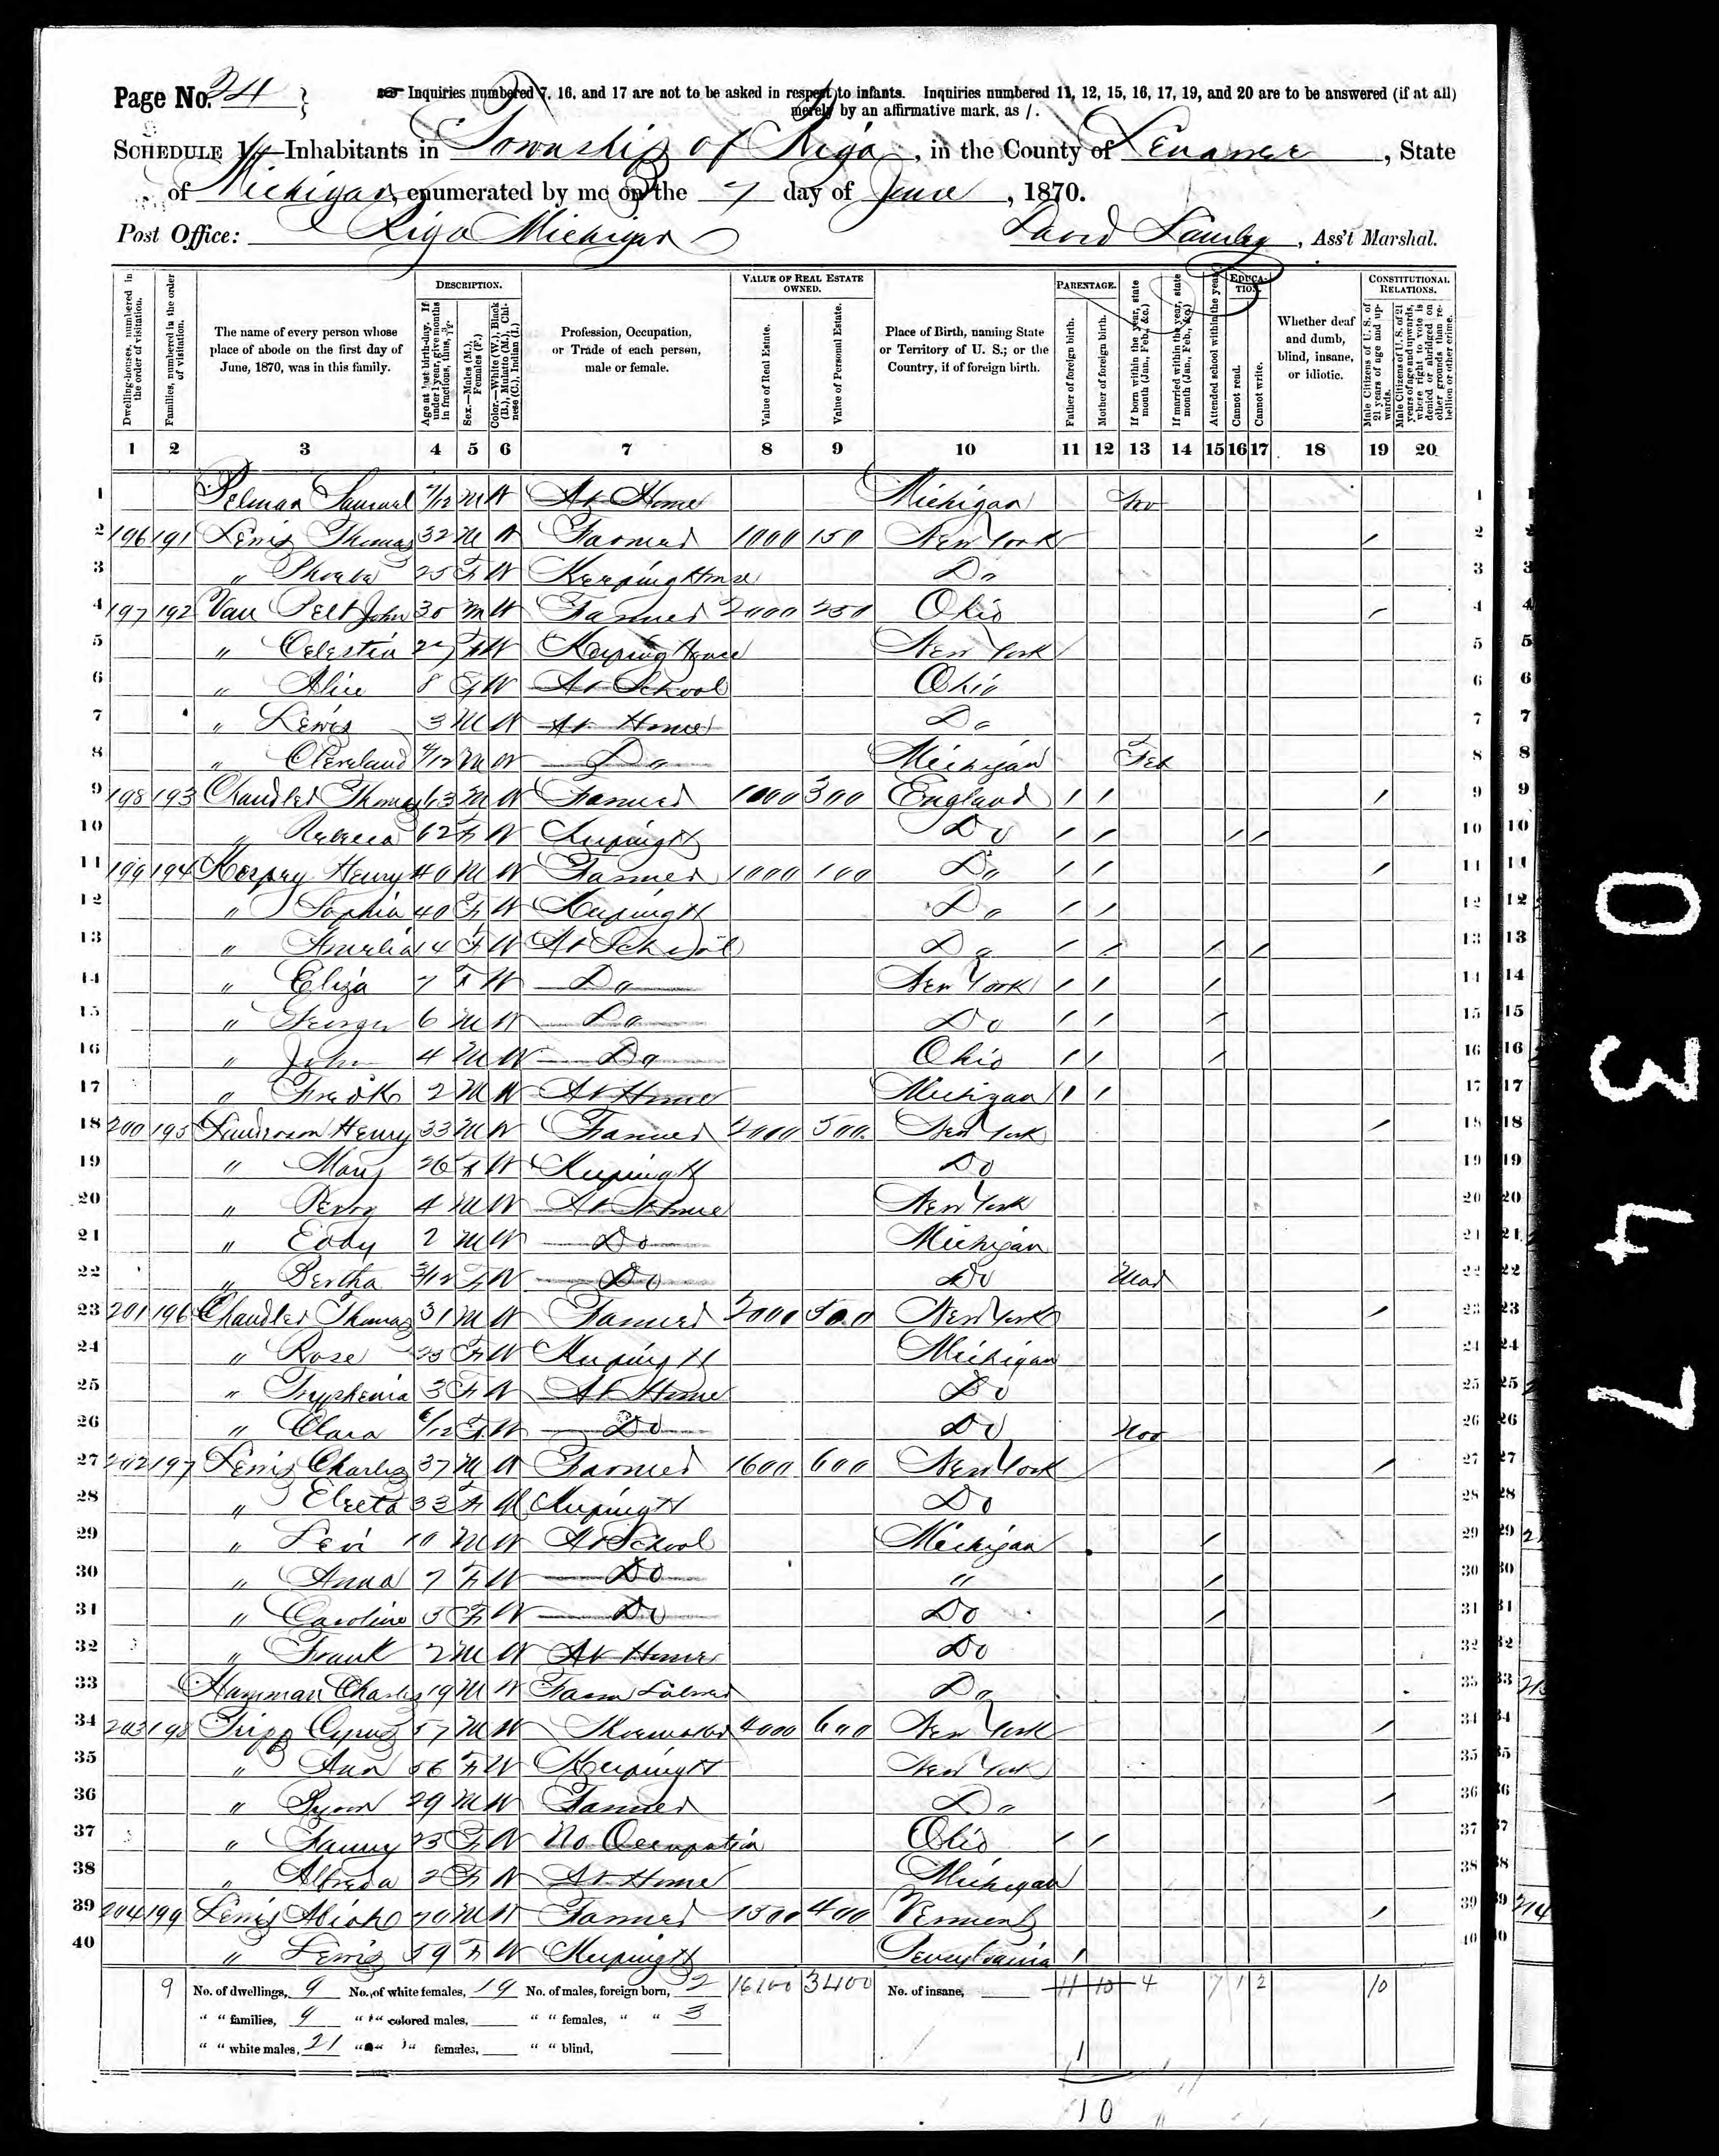 Page No. 24 } Inquiries numbered 7, 16, and 17 are not to be asked in respect to infants. Inquiries numbered 11, 12, 15, 16, 17, 19, and 20 are to be answered (if at all)
merely by an affirmative mark, as /.
SCHEDULE 1.—Inhabitants in Township of Riga, in the County of Lenawee, State
of Michigan, enumerated by me on the 7 day of June, 1870.
Post Office: Riga Michigan David, Ass't Marshal.
DESCRIPTION. VALUE OF REAL ESTATE OWNED. PARENTAGE. EDUCATION. CONSTITUTIONAL RELATIONS.
Dwelling-houses, numbered in the order of visitation.
Families, numbered in the order of visitation.
The name of every person whose place of abode on the first day of June, 1870, was in this family.
Age at last birth-day. If under 1 year, give months in fractions, thus, 3/12.
Sex.—Males (M.), Females (F.)
Color.—White (W.), Black (B.), Mulatto (M.), Chinese (C.), Indian (I.)
Profession, Occupation, or Trade of each person, male or female.
Value of Real Estate.
Value of Personal Estate.
Place of Birth, naming State or Territory of U. S.; or the Country, if of foreign birth.
Father of foreign birth.
Mother of foreign birth.
If born within the year, state month (Jan., Feb., &c.)
If married within the year, state month (Jan., Feb., &c.)
Attended school within the year.
Cannot read.
Cannot write.
Whether deaf and dumb, blind, insane, or idiotic.
Male Citizens of U. S. of 21 years of age and upwards.
Male Citizens of U. S. of 21 years of age and upwards, whose right to vote is denied or abridged on other grounds than rebellion or other crime.
1 2 3 4 5 6 7 8 9 10 11 12 13 14 15 16 17 18 19 20
1 Samuel 7/12 M W At Home Michigan Nov 1
2 196 191 Lewis Thomas 32 M W Farmer 1000 150 New York / 2
3 " Phoebe 25 F W Keeping House Do 3
4 197 192 Van Pelt John 30 M W Farmer 2000 250 Ohio / 4
5 " Celestia 27 F W Keeping House New York 5
6 " Alice 8 F W At School Ohio 6
7 " Lewis 3 M W At Home Do 7
8 " Cleveland 4/12 M W Do Michigan Feb 8
9 198 193 Chandler Thomas 63 M W Farmer 1000 300 England / / / 9
10 " Rebecca 62 F W Keeping H Do / / / / 10
11 199 194 Henry 40 M W Farmer 1000 100 Do / / / 11
12 " Sophia 40 F W Keeping H Do / / 12
13 " Amelia 14 F W At School Do / / / / 13
14 " Eliza 7 F W Do New York / / / 14
15 " George 6 M W Do Do / / / 15
16 " John 4 M W Do Ohio / / / 16
17 " Fredk 2 M W At Home Michigan / / 17
18 200 195 Henry 33 M W Farmer 2000 500 New York / 18
19 " Mary 26 F W Keeping H Do 19
20 " Perry 4 M W At Home New York 20
21 " Eddy 2 M W Do Michigan 21
22 " Bertha 3/12 F W Do Do Mar 22
23 201 196 Chandler Thomas 31 M W Farmer 2000 500 New York / 23
24 " Rose 23 F W Keeping H Michigan 24
25 " Tryphenia 3 F W At Home Do 25
26 " Clara 6/12 F W Do Do Nov 26
27 202 197 Lewis Charles 37 M W Farmer 1600 600 New York / 27
28 " Electa 33 F W Keeping H Do 28
29 " Levi 10 M W At School Michigan / 29
30 " Anna 7 F W Do " / 30
31 " Caroline 5 F W Do Do / 31
32 " Frank 2 M W At Home Do 32
33 Hamman Charles 19 M W Farm Laborer Do 33
34 203 198 Tripp Cyrus 57 M W Shoemaker 4000 600 New York / 34
35 " Ann 56 F W Keeping H New York 35
36 " Byron 29 M W Farmer Do / 36
37 " Fanny 23 F W No Occupation Ohio / / 37
38 " Alfreda 2 F W At Home Michigan 38
39 204 199 Lewis Abiah 70 M W Farmer 1500 400 Vermont / 39
40 " Lewis 59 F W Keeping H Pennsylvania / 40
9 No. of dwellings, 9 No. of white females, 19 No. of males, foreign born, 2 16100 3400 No. of insane, 11 10 4 7 1 2 10
" " families, 9 " " colored males, " " females, " " 3
" " white males, 21 " " " females, " " blind, 1
10
0347